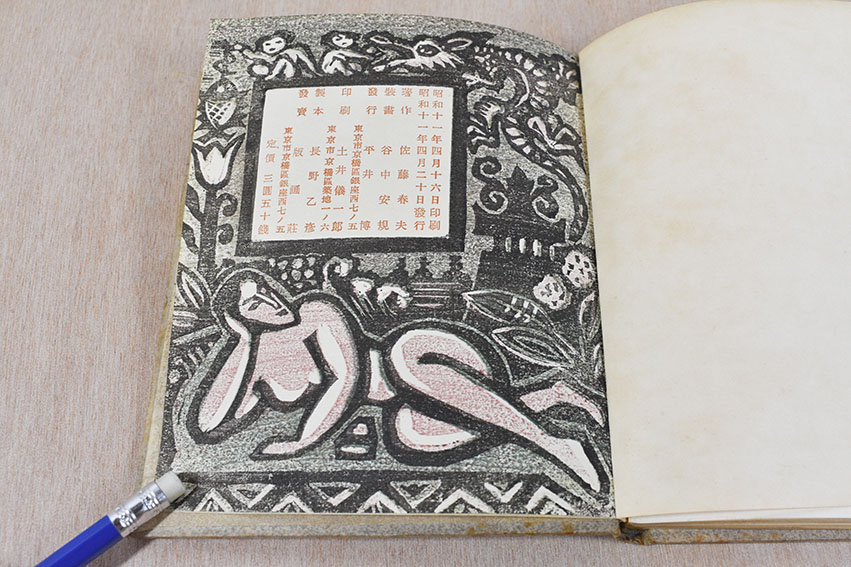 昭和十一年四月十六日印刷
昭和十一年四月二十日發行
著作 佐藤春夫
裝畫 谷中安規
發行 平井博
東京市京橋區銀座西七ノ五
印刷 土井儀一郎
東京市京橋區築地一ノ六
製本 長野乙彥
發賣 版畫莊
東京市京橋區銀座西七ノ五
定價 三圓五十錢